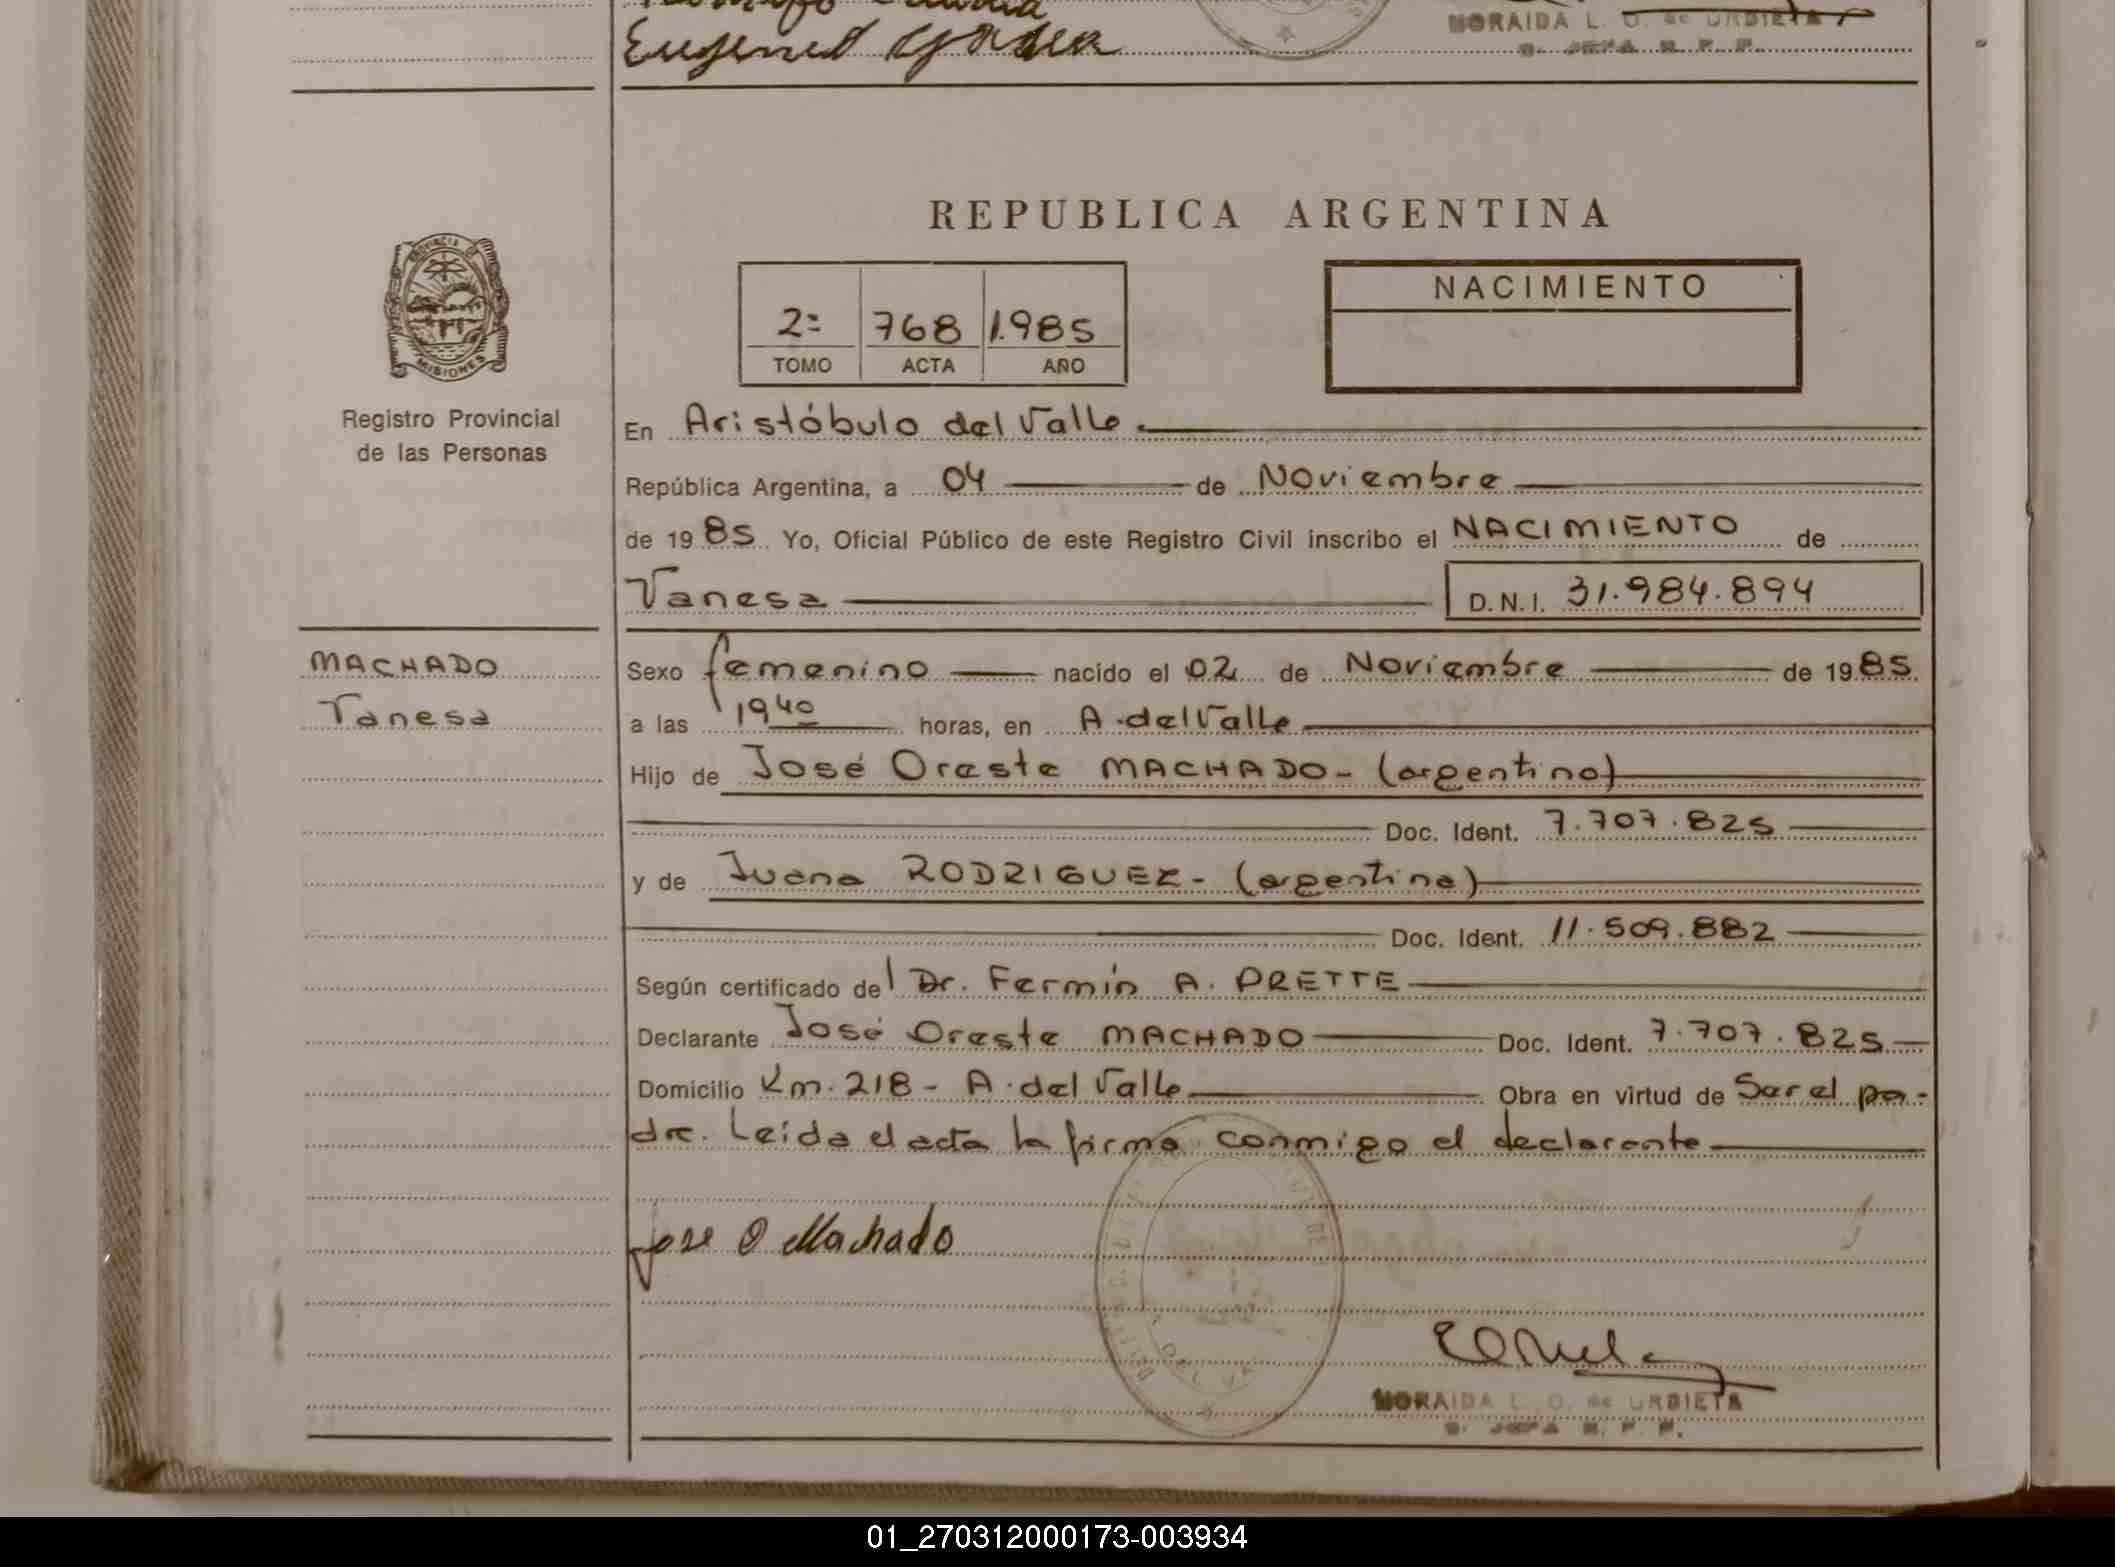 Eugenio
NORAIDA L. O. de URBIETA
REPUBLICA ARGENTINA
PROVINCIA DE
MISIONES
2º 768 1.985
TOMO ACTA AÑO
NACIMIENTO
Registro Provincial
de las Personas
En Aristóbulo del Valle.
República Argentina, a 04 de Noviembre
de 1985 Yo, Oficial Público de este Registro Civil inscribo el NACIMIENTO de
Vanesa D.N.I. 31.984.894
MACHADO
Vanesa
Sexo femenino nacido el 02 de Noviembre de 1985
a las 19 40 horas, en A. del Valle
Hijo de José Oreste MACHADO- (argentino)
Doc. Ident. 7.707.825
y de Juana RODRIGUEZ- (argentina)
Doc. Ident. 11.509.882
Según certificado del Dr. Fermín A. PRETTE
Declarante José Oreste MACHADO Doc. Ident. 7.707.825
Domicilio Km. 218 - A. del Valle Obra en virtud de Ser el pa-
dre. Leída el acta la firma conmigo el declarante
Jose O Machado
NORAIDA L. O. de URBIETA
JEFA R. P. P.
01_270312000173-003934